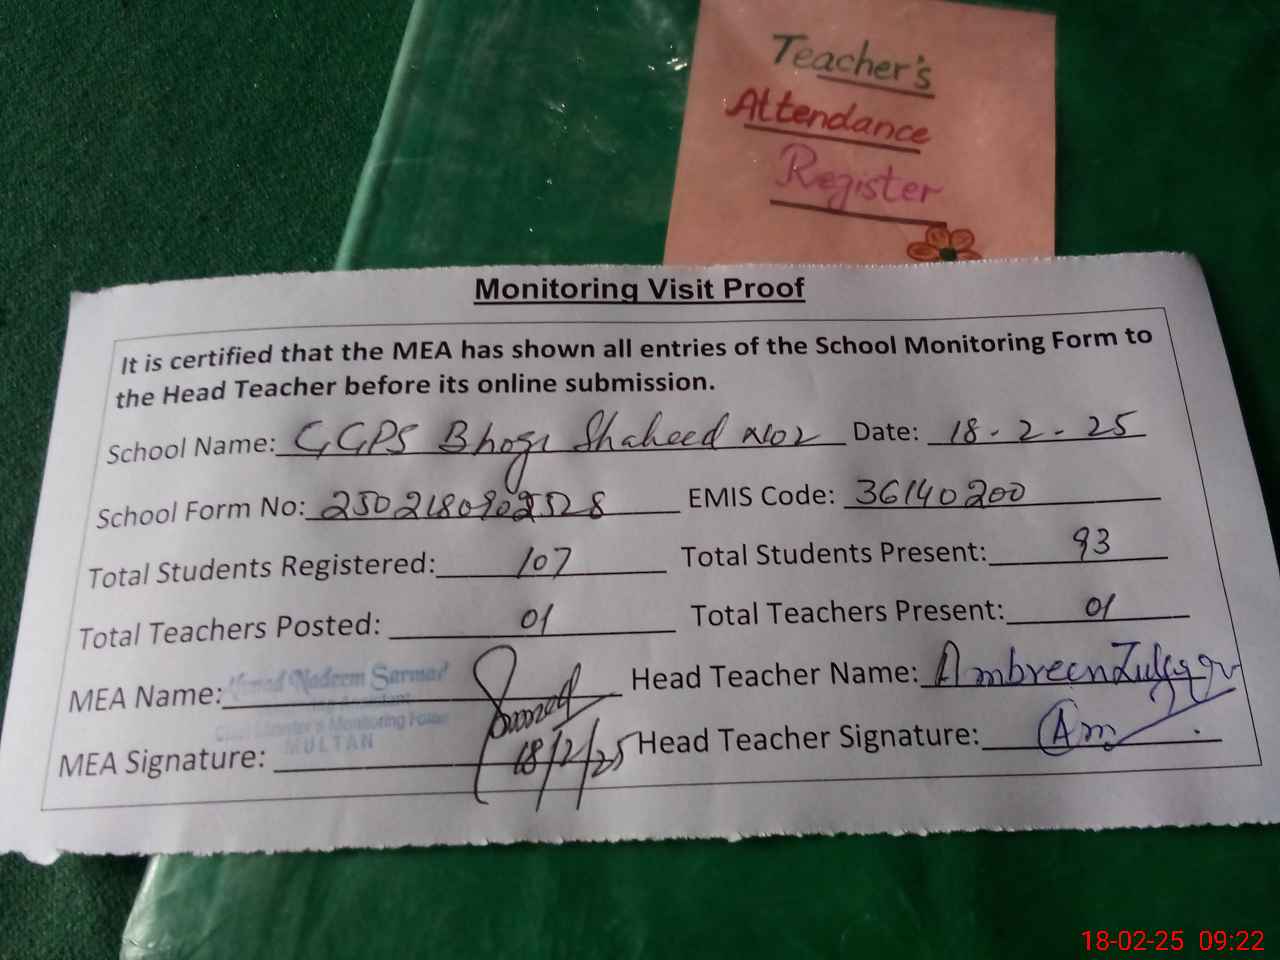 Teacher's
Attendance
Register
Monitoring Visit Proof
It is certified that the MEA has shown all entries of the School Monitoring Form to
the Head Teacher before its online submission.
School Name: GGPS Bhogi Shaheed Date: 18-2-25
School Form No: EMIS Code: 36140200
Total Students Registered: 107 Total Students Present: 93
Total Teachers Posted: 01 Total Teachers Present: 01
MEA Name: Nadeem Sarmad Head Teacher Name: Ambreen
Monitoring Force
MULTAN
MEA Signature: 18/2/25 Head Teacher Signature: Am
18-02-25 09:22